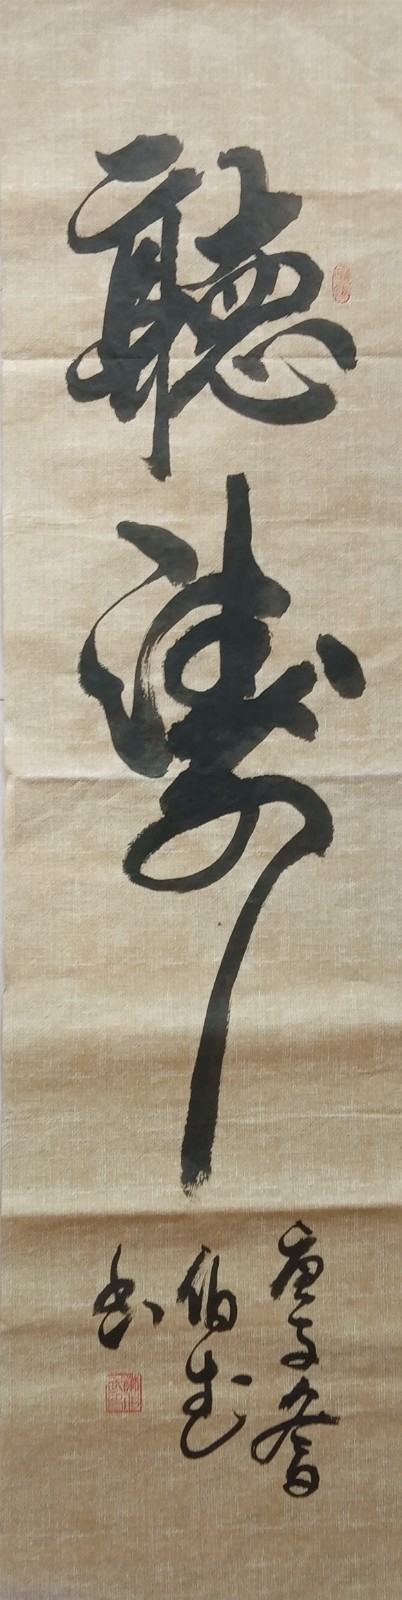 聽濤
庚子春
伯武
书